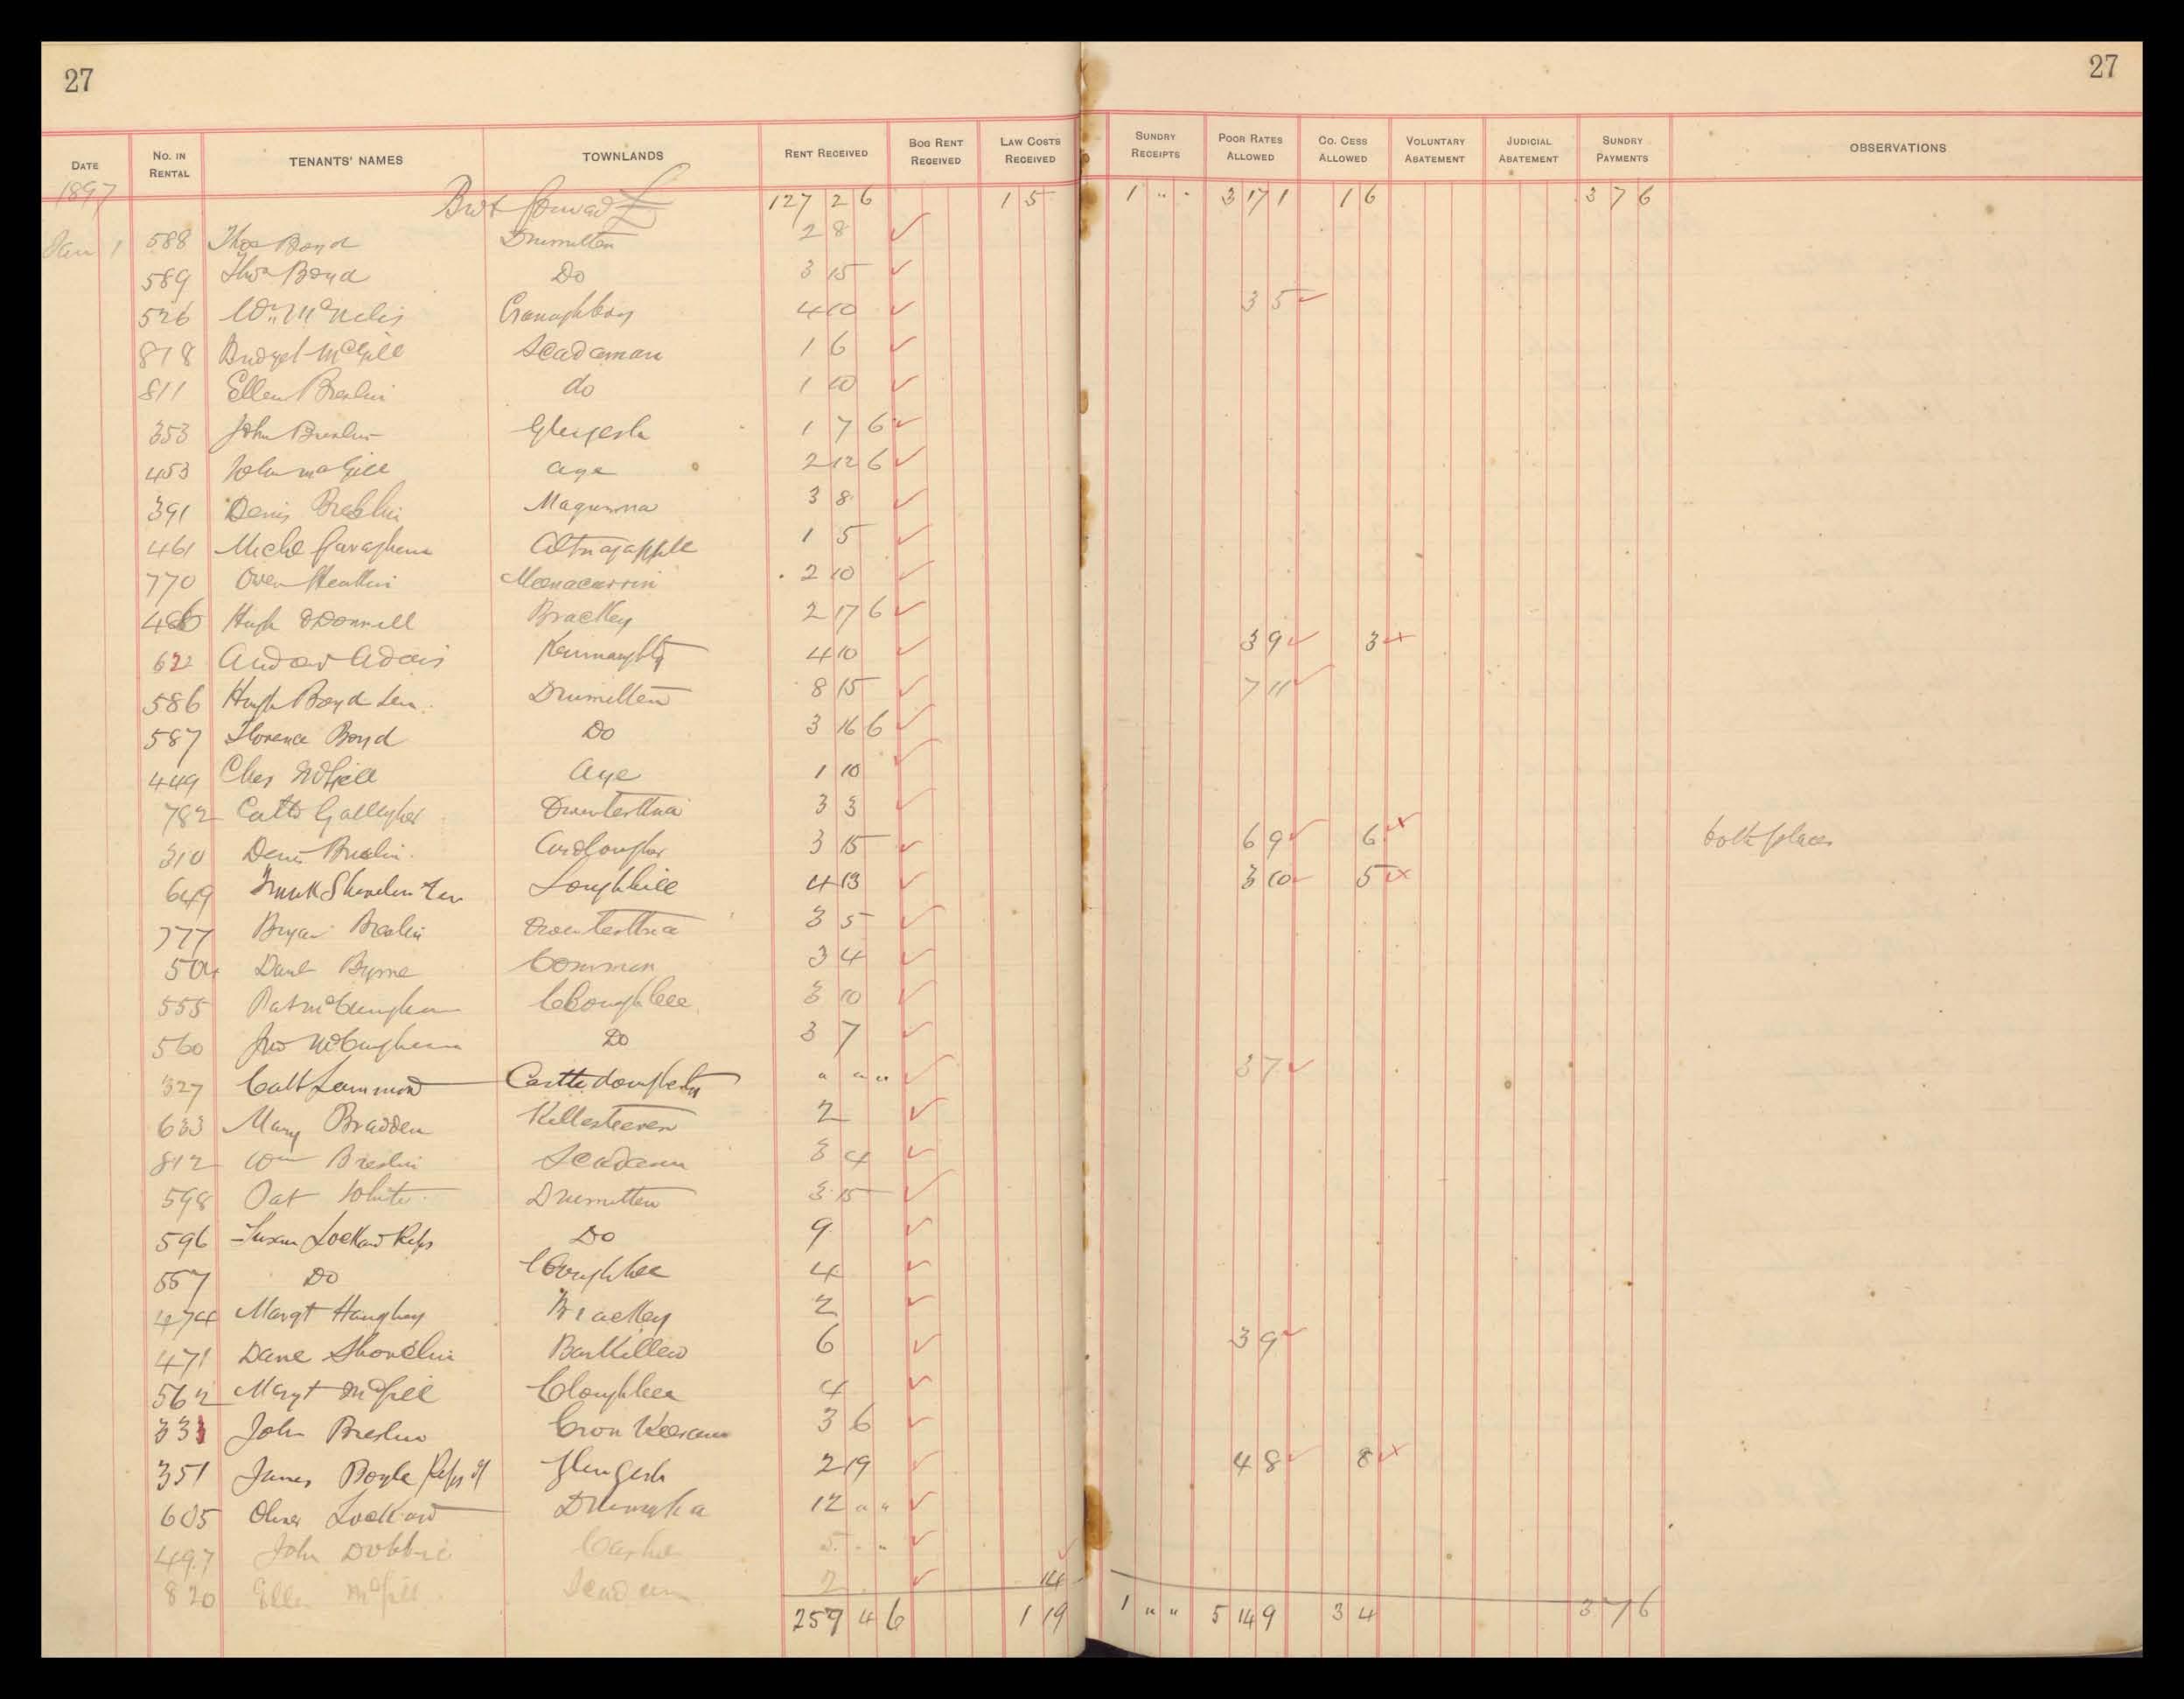 27 27
DATE No. IN RENTAL TENANTS' NAMES TOWNLANDS RENT RECEIVED BOG RENT RECEIVED LAW COSTS RECEIVED SUNDRY RECEIPTS POOR RATES ALLOWED CO. CESS ALLOWED VOLUNTARY ABATEMENT JUDICIAL ABATEMENT SUNDRY PAYMENTS OBSERVATIONS
1897 Brot forward £ 127 2 6 1 5 1 " " 3 17 1 1 6 3 7 6
Jan 1 588 Thos Boyd Drumitten 2 8
589 Thos Boyd Do 3 15
526 Wm McNelis Cranaghboy 4 10 3 5
818 Bridget McGill Scadaman 1 6
811 Ellen Breslin do 1 10
353 John Breslin Glengesh 1 7 6
453 John McGill Aye 2 12 6
391 Denis Breslin 3 8
461 Michl Altnagapple 1 5
770 Owen Meenacurrin 2 10
Hugh O'Donnell Brackey 2 17 6
622 Andw Adair 4 10 3 9 3
586 Hugh Boyd Sen. Drumitten 8 15 7 11
587 Florence Boyd Do 3 16 6
449 Chas McGill Aye 1 10
782 Cath Gallagher 3 3
310 Denis Breslin 3 15 6 9 6 both places
649 Frank Shovelin 4 13 3 10 5
777 Bryan Breslin 3 5
504 Danl Byrne Common 3 4
555 Pat McCunigham Cloughlee 3 10
560 Jno McCunigham Do 3 7
327 Castledougherty " " " 3 7
633 Mary Bradden Killasteever 2
812 Wm Breslin Scadaman 3 4
598 Pat White Drumitten 3 15
596 Susan Lockard Reps Do 9
557 Do Cloughlee 4
474 Margt Haughey Brackey 2
471 Danl Shovelin Barkillew 6 3 9
562 Margt McGill Cloughlee 4
331 John Breslin 3 6
351 James Boyle Reps of Glengesh 2 19 4 8 8
605 Oliver Lockard 12 " "
497 John Dobbin 5 " "
820 Ellen McGill Scadaman 2 14
259 4 6 1 19 1 " " 5 14 9 3 4 3 7 6